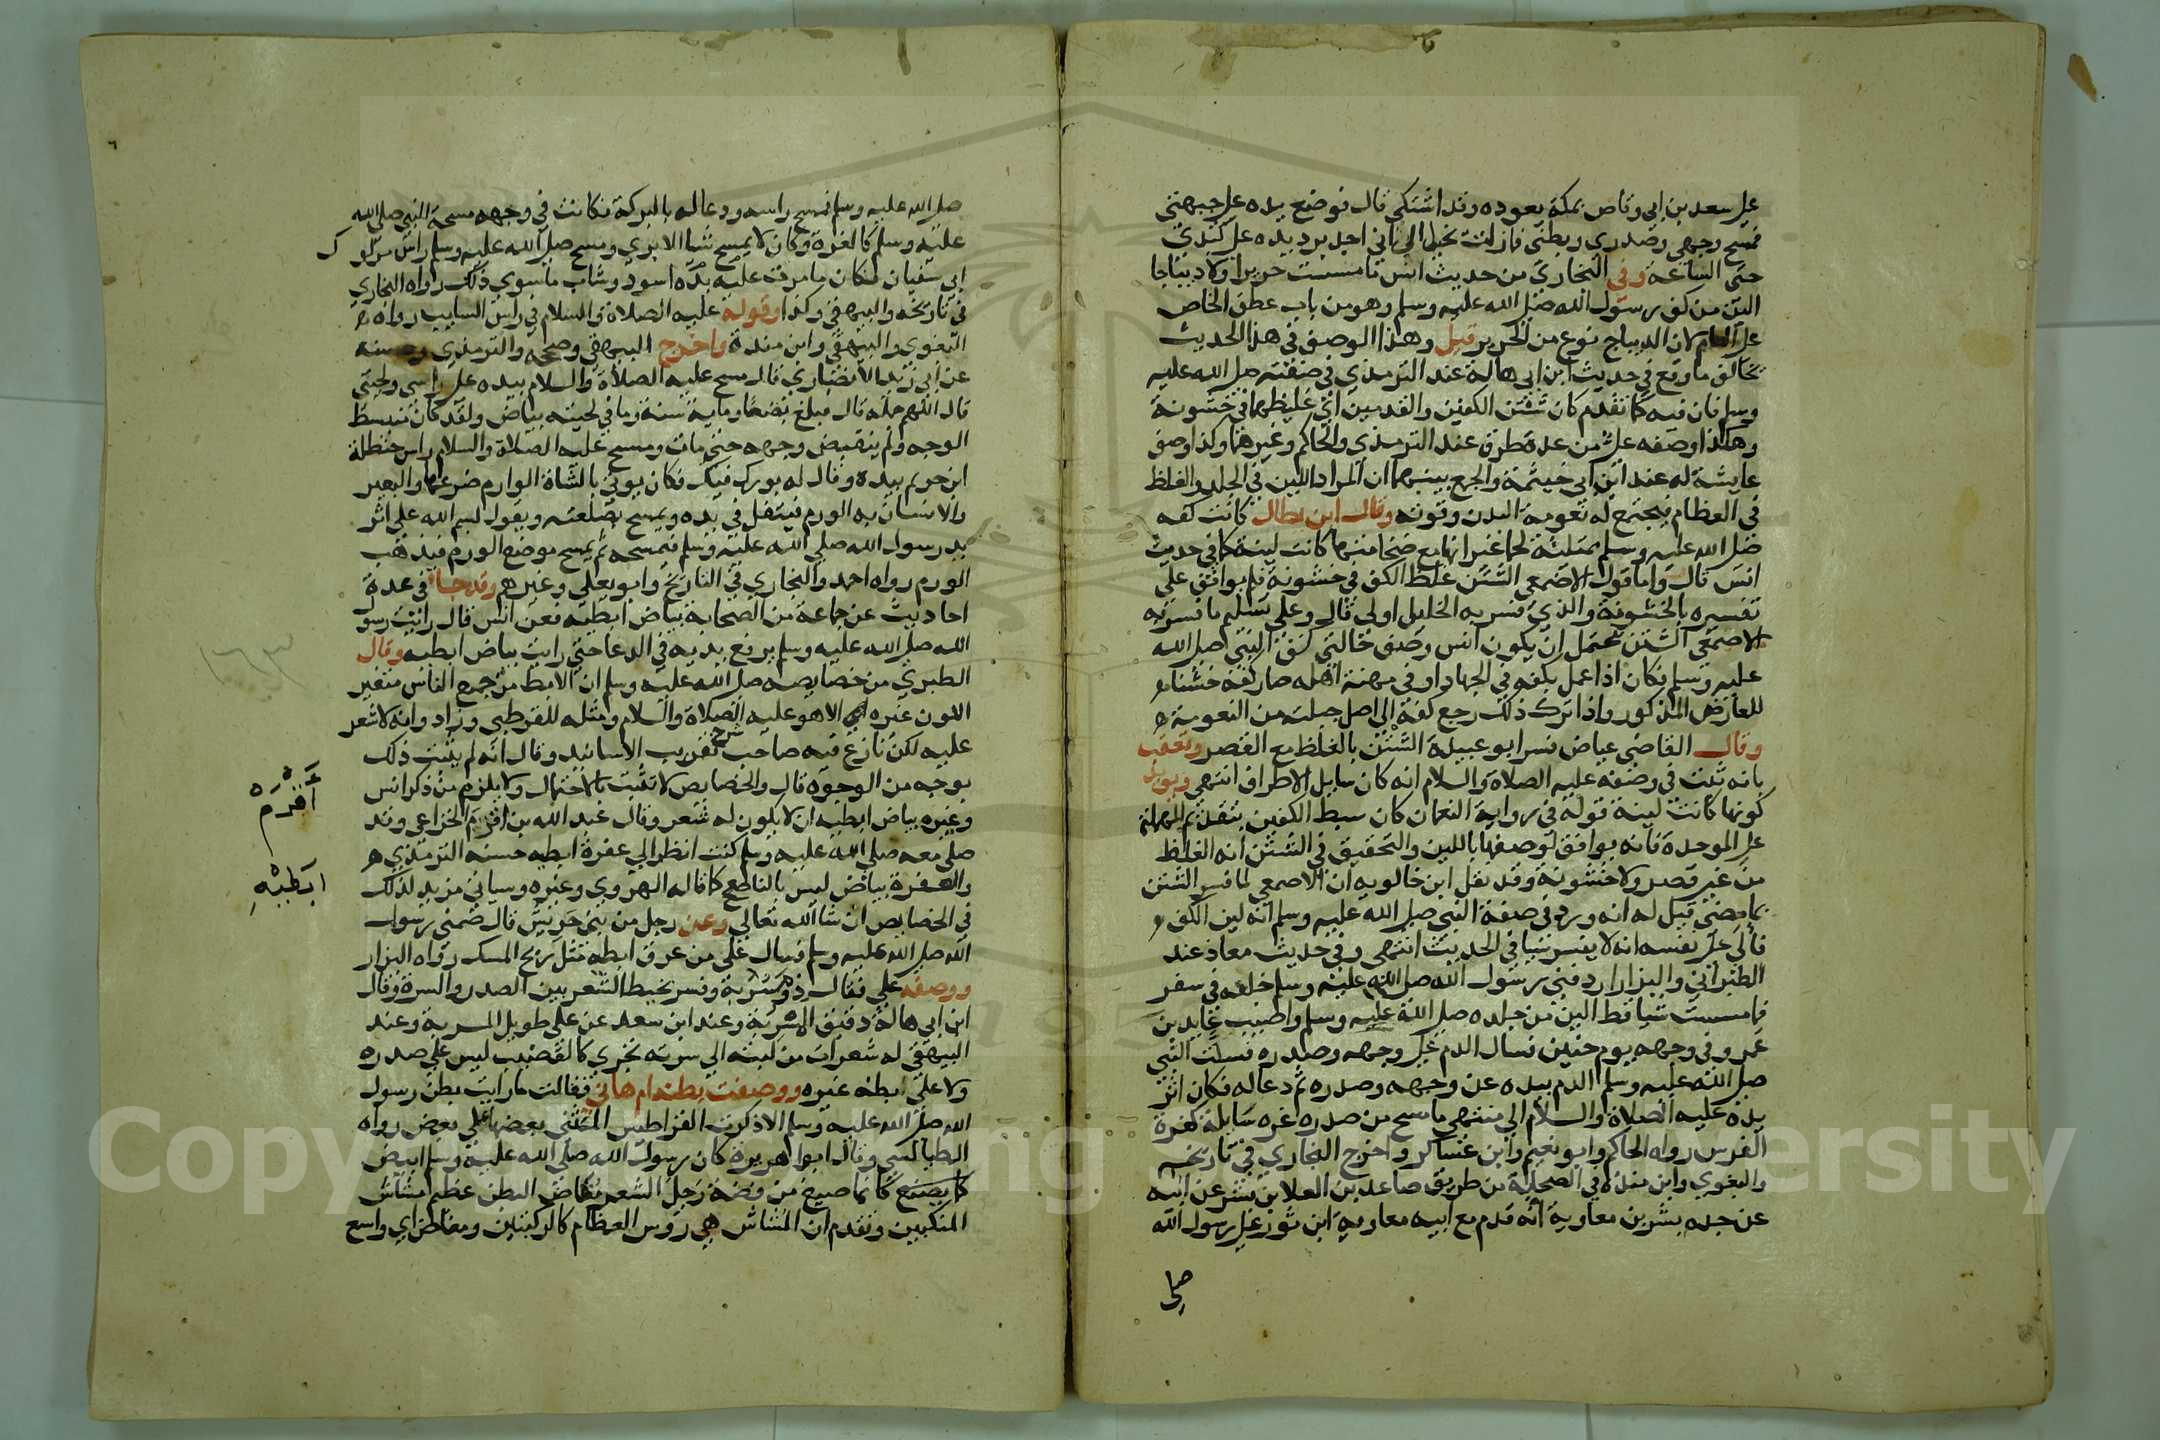 على سعد بن ابي وقاص بمكة يعوده وقد اشتكى قال فوضع يده على جبهتي
فمسح وجهي وصدري وبطني فمازلت يخيل الي اني اجد برد يده على كبدي
حتى الساعة وفي البخاري من حديث انس ما مسست حريرا ولا ديباجا
الين من كف رسول الله صلى الله عليه وسلم وهو من باب عطف الخاص
على العام لان الديباج نوع من الحرير قيل وهذا الوصف في هذا الحديث
يخالف ما وقع في حديث ابن ابي هالة عند الترمذي في صفته صلى الله عليه
وسلم فان فيه كما تقدم كان شثن الكفين والقدمين اي غليظهما في خشونة
وهكذا وصفه علي من عدة طرق عند الترمذي والحاكم وغيرهما وكذا وصف
عايشة له عند ابن ابي خيثمة والجمع بينهما ان المراد اللين في الجلد والغلظ
في العظام فيجتمع له نعومة البدن وقوته وقال ابن بطال كانت كفه
صلى الله عليه وسلم ممتلئة لحما غير انها مع ضخامتها كانت لينة كما في حديث
انس قال واما قول الاصمعي الشثن غلظ الكف في خشونة فلم يوافق على
تفسيره بالخشونة والذي فسر به الخليل اولى قال وعلى تسليم ما فسر به
الاصمعي الشثن يحتمل ان يكون انس وصف حالتي كف النبي صلى الله
عليه وسلم فكان اذا عمل بكفه في الجهاد او في مهنة اهله صار كفه خشنا
للعارض المذكور واذا ترك ذلك رجع كفه الي اصل جبلته من النعومة ه
وقال القاضي عياض فسر ابو عبيدة الشثن بالغلظ مع القصر وتعقب
بانه ثبت في وصفه عليه الصلاة والسلام انه كان سايل الاطراف انتهي ويويد
كونها كانت لينة قوله في رواية النعمان كان سبط الكفين بتقديم المهملة
على الموحدة فانه يوافق لوصفها باللين والتحقيق في الشثن انه الغلظ
من غير قصر ولا خشونة وقد نقل ابن خالويه ان الاصمعي لما فسر الشثن
بما مضى قيل له انه ورد في صفة النبي صلى الله عليه وسلم انه لين الكف
فآلى على نفسه انه لا يفسر شيا في الحديث انتهى وفي حديث معاذ عند
الطبراني والبزار اردفني رسول الله صلى الله عليه وسلم خلفه في سفر
فما مسست شيا قط الين من جلده صلى الله عليه وسلم واصيب عايد بن
عمرو في وجهه يوم حنين فسال الدم على وجهه وصدره فسلت النبي
صلى الله عليه وسلم الدم بيده عن وجهه وصدره ثم دعا له فكان اثر
يده عليه الصلاة والسلام الى منتهى ما مسح من صدره غرة سايلة كغرة
الفرس رواه الحاكم وابو نعيم وابن عساكر واخرج البخاري في تاريخه
والبغوي وابن منده في الصحابة من طريق صاعد بن العلا بن بشر عن ابيه
عن جده بشر بن معاوية انه قدم مع ابيه معاوية ابن ثور على رسول الله
صلى
صلى الله عليه وسلم فمسح راسه ودعا له بالبركة فكانت في وجهه مسحة النبي صلى الله
عليه وسلم كالغرة وكان لا يمسح شيا الا بري ومسح صلى الله عليه وسلم راس مدلوك
ابي سفيان فكان ما مرت عليه يده اسود وشاب ما سوي ذلك رواه البخاري
في تاريخه والبيهقي وكذا وقوله عليه الصلاة والسلام في راس السايب رواه
البغوي والبيهقي وابن مندة واخرج البيهقي وصححه والترمذي وحسنه
عن ابي زيد الانصاري قال مسح عليه الصلاة والسلام بيده على راسي ولحيتي
قال اللهم جمله قال فبلغ بضعا وماية سنة وما في لحيته بياض ولقد كان منبسط
الوجه ولم ينقبض وجهه حتى مات ومسح عليه الصلاة والسلام راس حنظلة
ابن حذيم بيده وقال له بورك فيك فكان يوتى بالشاة الوارم ضرعها والبعير
والانسان به الورم فيتفل في يده ويمسح بصلعته ويقول بسم الله على اثر
يد رسول الله صلى الله عليه وسلم فيمسحه ثم يمسح موضع الورم فيذهب
الورم رواه احمد والبخاري في التاريخ وابو يعلي وغيرهم وقد جا في عدة
احاديث عن جماعة من الصحابة بياض ابطيه فعن انس قال رايت رسول
الله صلى الله عليه وسلم يرفع يديه في الدعا حتى رايت بياض ابطيه وقال
الطبري من خصايصه صلى الله عليه وسلم ان الابط من جميع الناس متغير
اللون غيره اي الا هو عليه الصلاة والسلام ومثله للقرطبي وزاد وانه لا شعر
عليه لكن نازع فيه صاحب شرح تقريب الاسانيد وقال انه لم يثبت ذلك
بوجه من الوجوه قال والخصايص لا تثبت بالاحتمال ولا يلزم من ذكر انس
وغيره بياض ابطيه ان لا يكون له شعر وقال عبد الله بن اقرم الخزاعي وقد
أَقْرَم
صلى معه صلى الله عليه وسلم كنت انظر الي عفرة ابطيه حسنه الترمذي ه
والعفرة بياض ليس بالناصع كما قاله الهروي وغيره وسياتي مزيد لذلك
ابطَيْهِ
في الخصايص ان شا الله تعالي وعن رجل من بني حريش قال ضمني رسول
الله صلى الله عليه وسلم فسال علي من عرق ابطه مثل ريح المسك رواه البزار
ووصفه علي فقال ذو مسربة وفسر بخيط الشعر بين الصدر والسرة وقال
ابن ابي هالة دقيق المسربة وعند ابن سعد عن علي طويل المسربة وعند
البيهقي له شعرات من لبته الي سرته تجري كالقضيب ليس علي صدره
ولا علي بطنه غيره ووصفت بطنه ام هاني فقالت ما رايت بطن رسول
الله صلى الله عليه وسلم الا ذكرت القراطيس المثنى بعضها علي بعض رواه
الطيالسي وقال ابو هريرة كان رسول الله صلى الله عليه وسلم ابيض
كانما صيغ من فضة رجل الشعر مفاض البطن عظيم مشاش
المنكبين وتقدم ان المشاش هي روس العظام كالركبتين ومفاض اي واسع